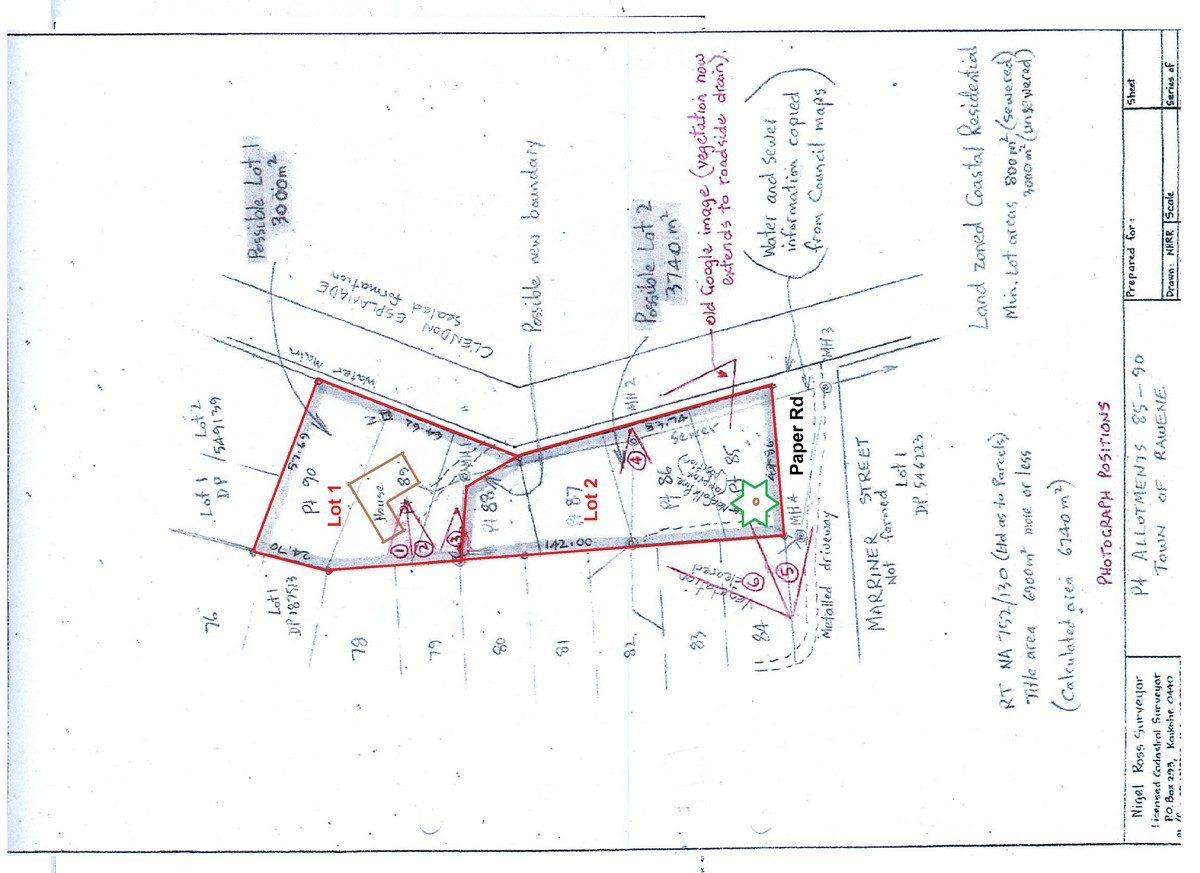 Possible Lot 1
3000m²
Lot 1 / Lot 2
DP / 549139
CLENDON ESPLANADE
sealed formation
Water Main
57.69
Pt 90
Lot 1
House
89
24.70
Lot 1
DP 187513
76
78
79
80
81
82
83
84
Possible new boundary
Possible Lot 2
3740 m²
Old Google image (vegetation now
extends to roadside drain).
Water and Sewer
information copied
from Council maps
MH1
MH2
MH3
MH4
Pt 88
Pt 87
Lot 2
Pt 86
Pt 85
83.74
Sewer
142.00
1
2
3
4
5
6
Vegetation
cleared
Paper Rd
Metalled driveway
MARRINER STREET
Not formed
Lot 1
DP 546223
Land zoned Coastal Residential
Min. Lot areas 800m² (sewered)
3000m² (unsewered)
RT NA 752/130 (Ltd as to Parcels)
Title area 6900m² more or less
(Calculated area 6740m²)
PHOTOGRAPH POSITIONS
Nigel Ross Surveyor
Licensed Cadastral Surveyor
P.O. Box 293, Kaikohe 0440
Pt ALLOTMENTS 85 - 90
TOWN OF RAWENE
Prepared for:
Drawn: NHRR
Scale
Sheet
Series of